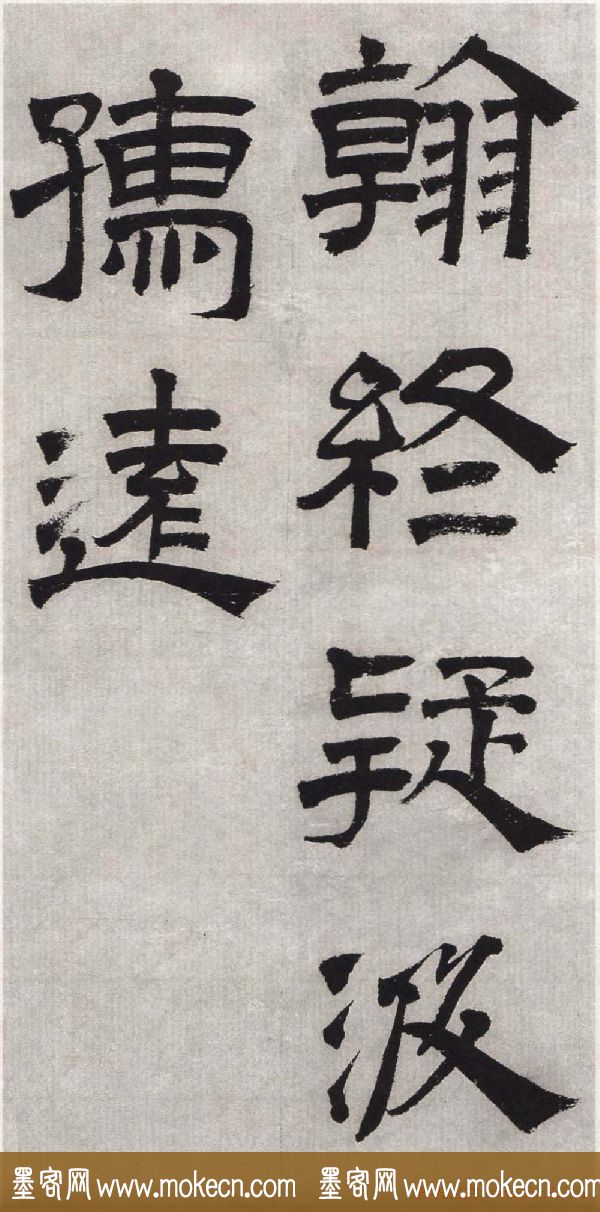 翰終疑汲
孺遠
墨客网 www.mokecn.com 墨客网 www.mokecn.com